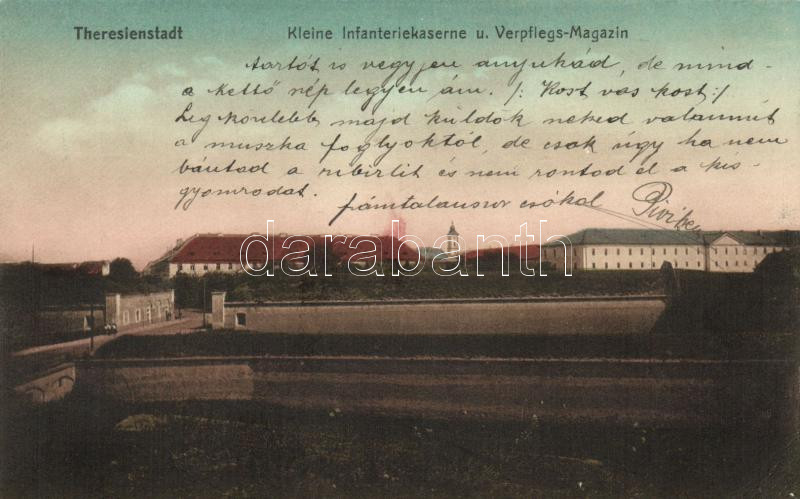 Theresienstadt Kleine Infanteriekaserne u. Verpflegs-Magazin
tartót is vegyjen anyukád, de mind-
a kettő nép legyen ám. /: Kost vas kost :/
Legközelebb majd küldök neked valamit
a muszka foglyoktól, de csak úgy ha nem
bántad a ribizlit és nem rontod el a kis
gyomrodat.
számtalanszor csókol
darabanth.com